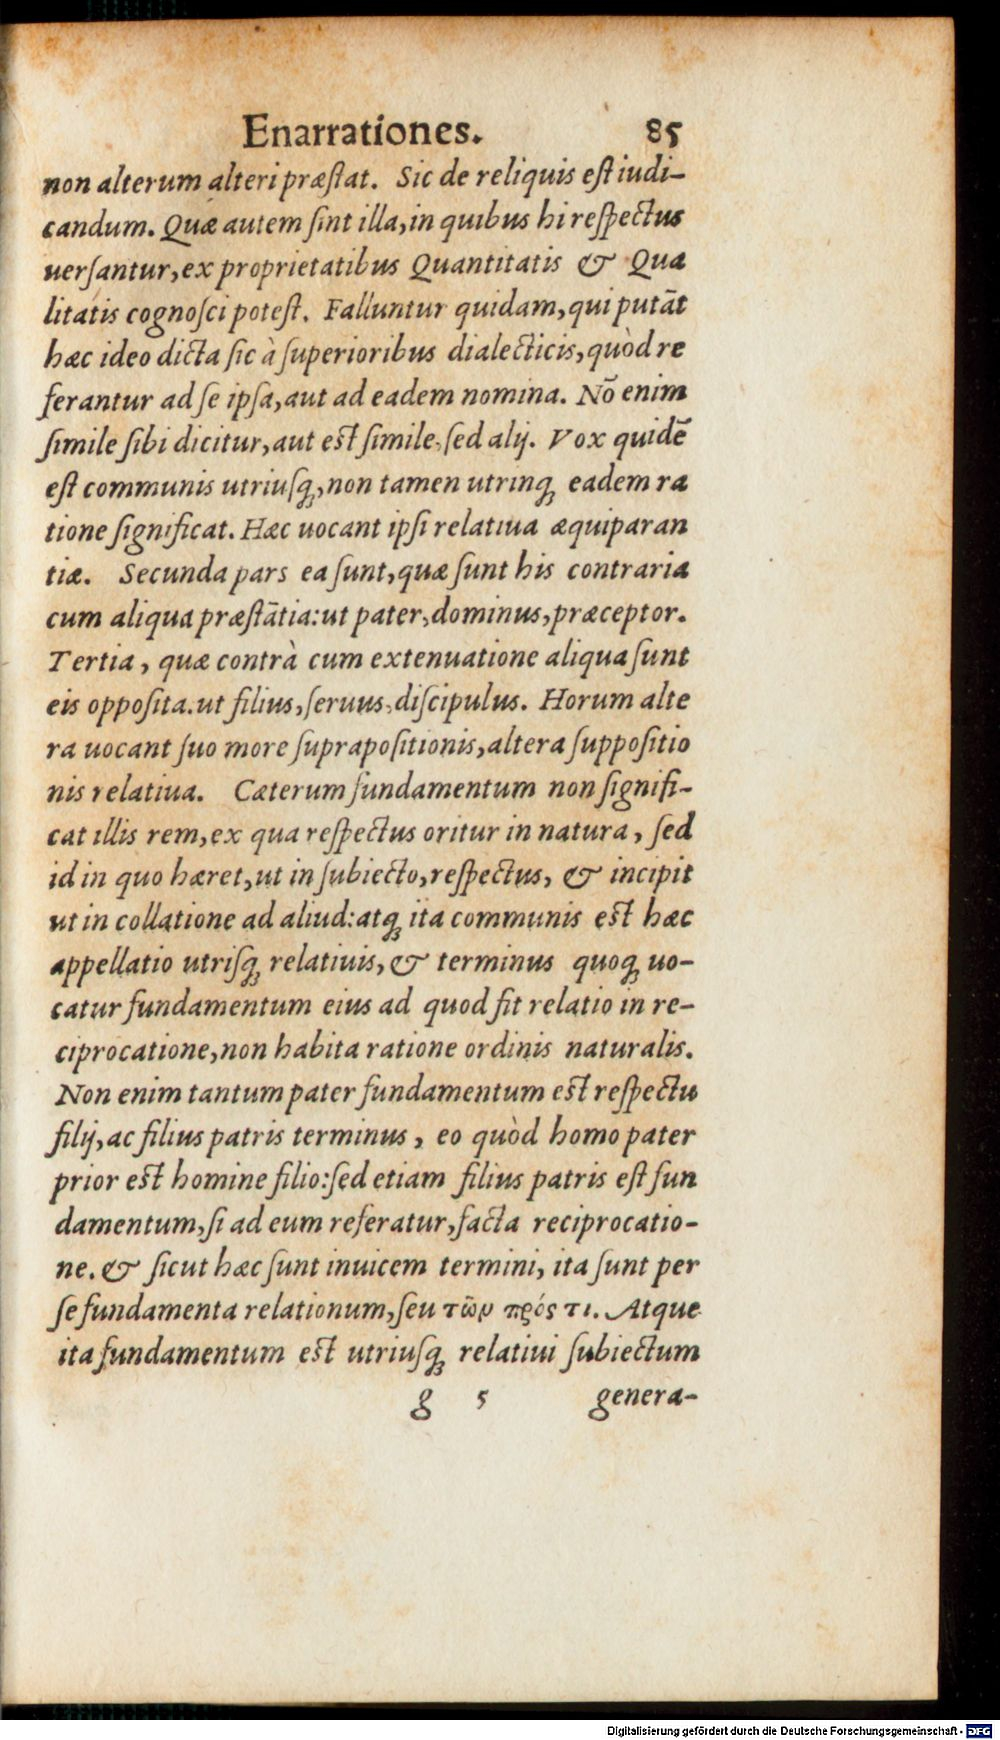 Enarrationes. 85
non alterum alteri præſtat. Sic de reliquis eſt iudi-
candum. Quæ autem ſint illa, in quibus hi reſpectus
uerſantur, ex proprietatibus Quantitatis & Qua
litatis cognoſci poteſt. Falluntur quidam, qui putāt
hæc ideo dicta ſic à ſuperioribus dialecticis, quòd re
ferantur ad ſe ipſa, aut ad eadem nomina. Nō enim
ſimile ſibi dicitur, aut eſt ſimile, ſed alij. Vox quidē
eſt communis utriuſq;, non tamen utrinq; eadem ra
tione ſignificat. Hæc uocant ipſi relatiua æquiparan
tiæ. Secunda pars ea ſunt, quæ ſunt his contraria
cum aliqua præſtātia: ut pater, dominus, præceptor.
Tertia, quæ contrà cum extenuatione aliqua ſunt
eis oppoſita. ut filius, ſeruus, diſcipulus. Horum alte
ra uocant ſuo more ſuprapoſitionis, altera ſuppoſitio
nis relatiua. Cæterum fundamentum non ſignifi-
cat illis rem, ex qua reſpectus oritur in natura, ſed
id in quo hæret, ut in ſubiecto, reſpectus, & incipit
ut in collatione ad aliud: atq; ita communis eſt hæc
appellatio utriſq; relatiuis, & terminus quoq; uo-
catur fundamentum eius ad quod fit relatio in re-
ciprocatione, non habita ratione ordinis naturalis.
Non enim tantum pater fundamentum eſt reſpectu
filij, ac filius patris terminus, eo quòd homo pater
prior eſt homine filio: ſed etiam filius patris eſt fun
damentum, ſi ad eum referatur, facta reciprocatio-
ne. & ſicut hæc ſunt inuicem termini, ita ſunt per
ſe fundamenta relationum, ſeu τῶν πρός τι. Atque
ita fundamentum eſt utriuſq; relatiui ſubiectum
g 5 genera-
Digitalisierung gefördert durch die Deutsche Forschungsgemeinschaft - DFG